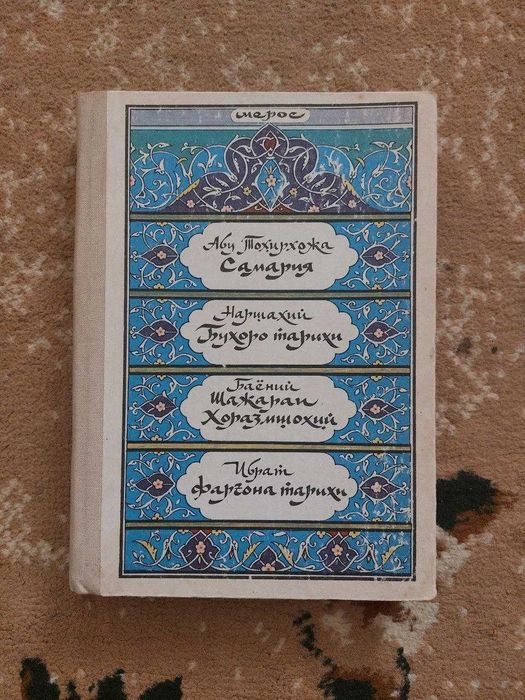 мерос
Абу Тохирхожа
Самария
Наршахий
Бухоро тарихи
Баёний
Шажараи
Хоразмшохий
Ибрат
Фарғона тарихи